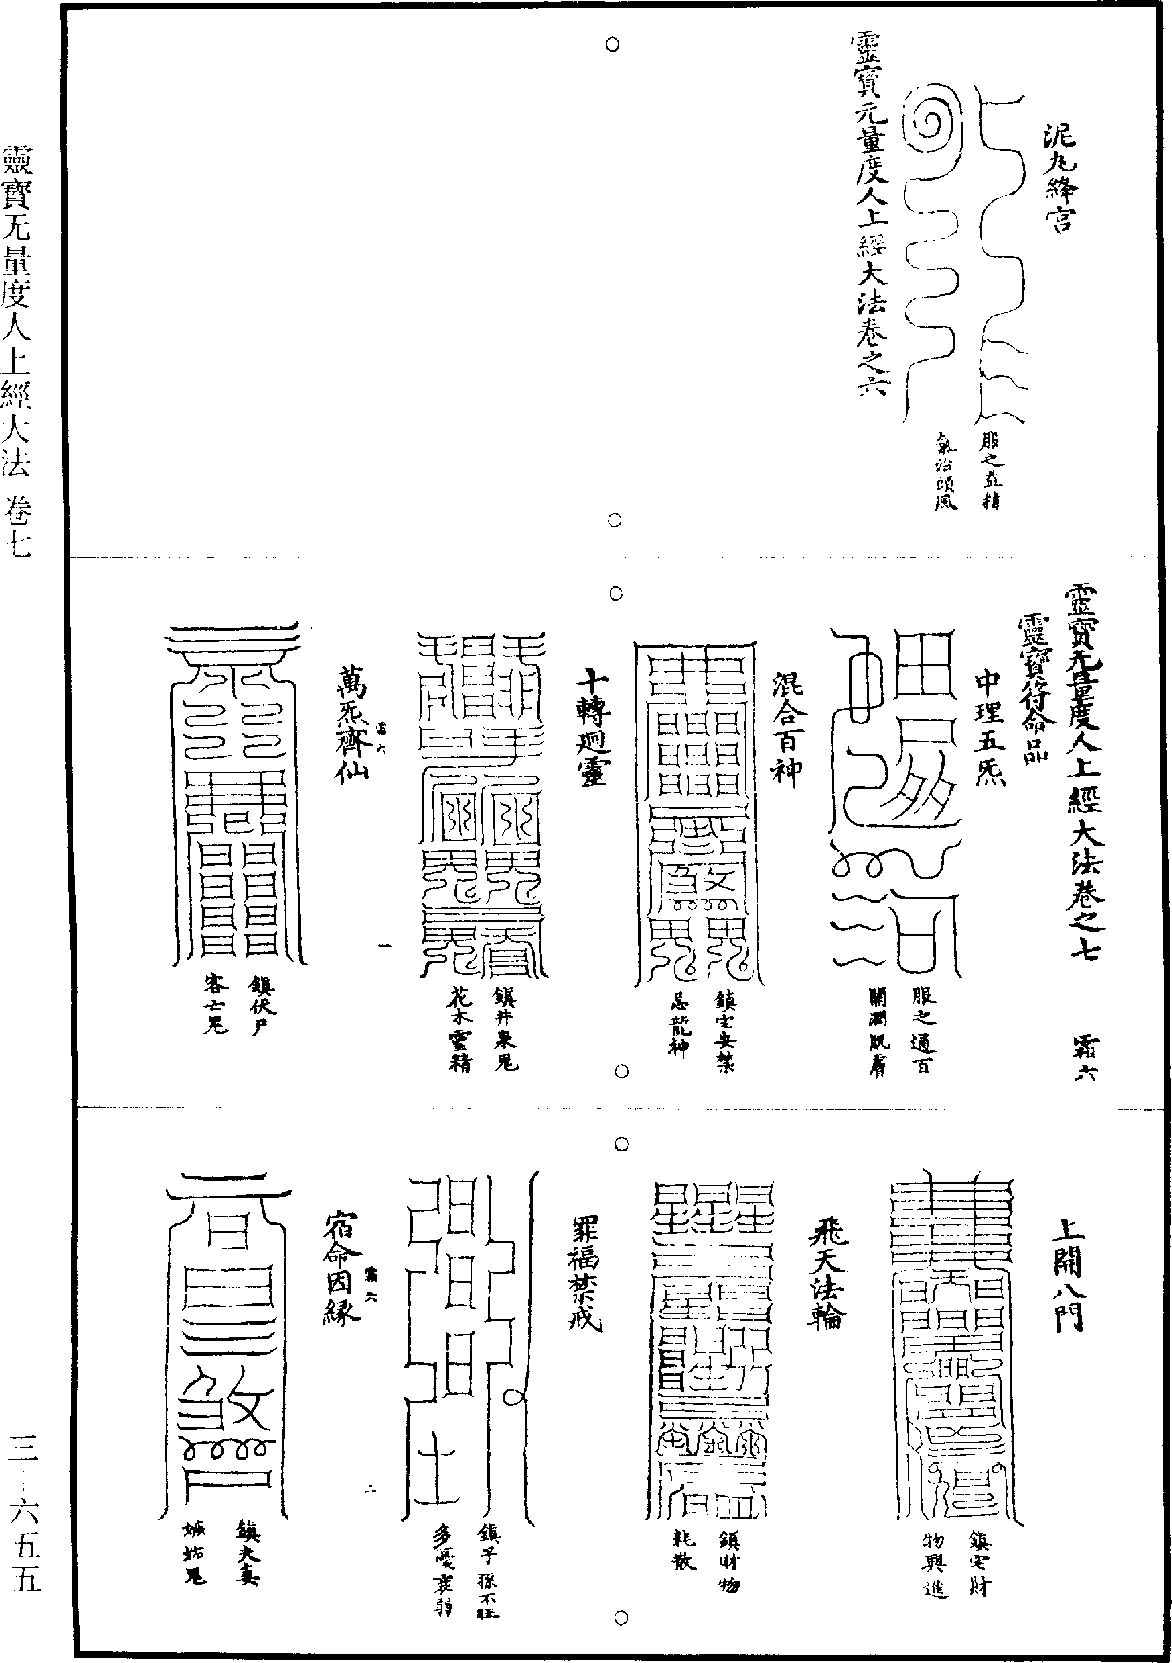 泥丸絳宮
服之益精
氣治頭風
靈寶无量度人上經大法卷之六
靈寶无量度人上經大法卷之七 霜六
靈寶符命品
中理五炁
服之通百
關潤肌膚
混合百神
鎮宅安禁
忌龍神
十轉迴靈
鎮井泉鬼
花木靈精
霜六
萬炁齊仙
鎮伏尸
客亡鬼
一
上開八門
鎮宅財
物興進
飛天法輪
鎮財物
耗散
罪福禁戒
鎮子孫不旺
多憂衰弱
霜六
宿命因緣
鎮夫妻
嫉妬鬼
二
靈寶无量度人上經大法 卷七
三-六五五